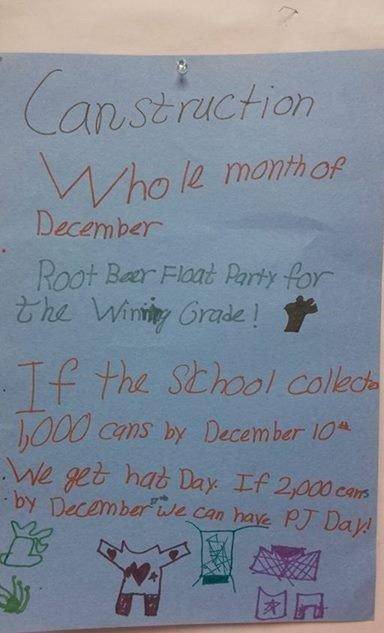 Canstruction
Whole month of
December
Root Beer Float Party for
the Wining Grade!
If the School collects
1,000 cans by December 10th
We get hat Day. If 2,000 cans
by December we can have PJ Day!